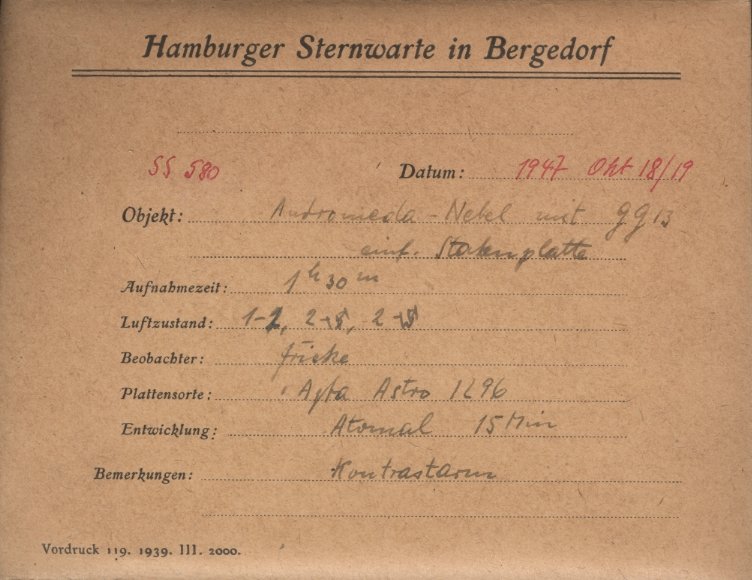 Hamburger Sternwarte in Bergedorf
SS 580 Datum: 1947 Okt 18/19
Objekt: Andromeda-Nebel mit GG 13
Aufnahmezeit: 1h 30m
Luftzustand: 1-2, 2
Beobachter: Fricke
Plattensorte: Agfa Astro
Entwicklung: Atomal 15 Min
Bemerkungen: Kontrastarm
Vordruck 119. 1939. III. 2000.